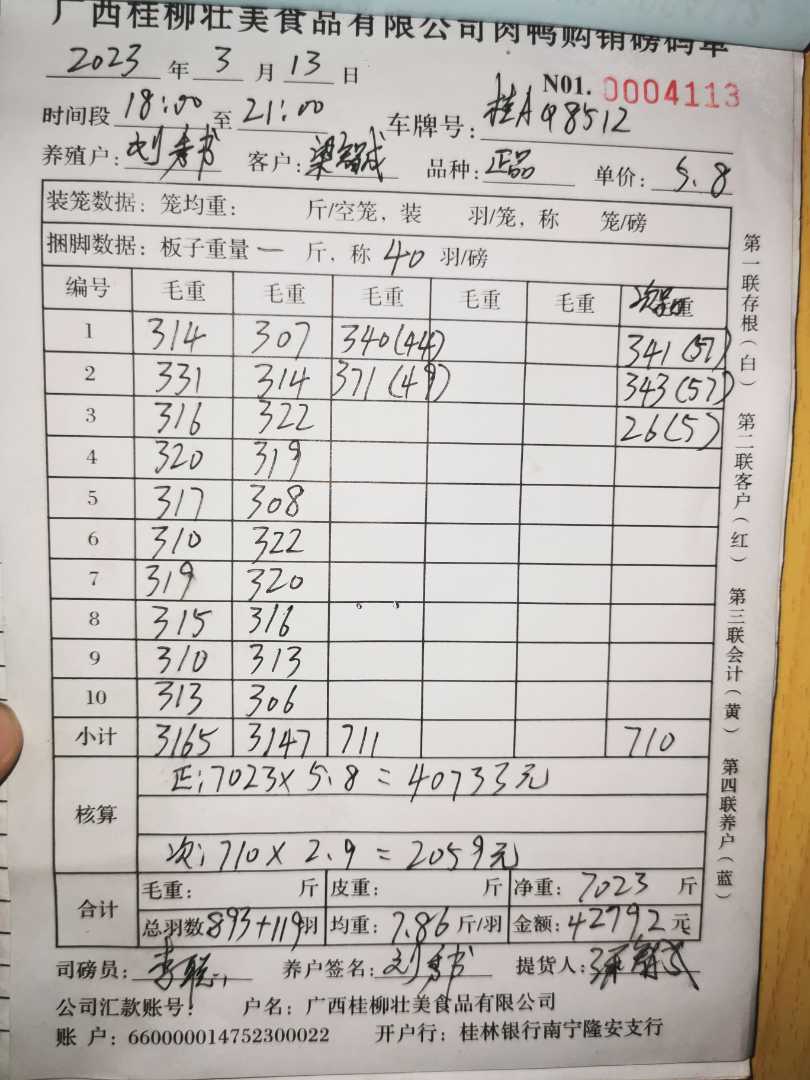 广西桂柳壮美食品有限公司肉鸭购销磅码单
2023 年 3 月 13 日 N01. 0004113
时间段 18:00 至 21:00 车牌号: 桂A Q8512
养殖户: 刘 书 客户: 梁 成 品种: 正品 单价: 5.8
装笼数据: 笼均重: 斤/空笼, 装 羽/笼, 称 笼/磅
捆脚数据: 板子重量 一 斤, 称 40 羽/磅
编号 毛重 毛重 毛重 毛重 毛重 次品 重
1 314 307 340(44) 341(57)
2 331 314 371(49) 343(57)
3 316 322 26(5)
4 320 319
5 317 308
6 310 322
7 319 320
8 315 316
9 310 313
10 313 306
小计 3165 3147 711 710
核算 正: 7023 × 5.8 = 40733元
次: 710 × 2.9 = 2059元
合计 毛重: 斤 皮重: 斤 净重: 7023 斤
总羽数 893+119 羽 均重: 7.86 斤/羽 金额: 42792 元
司磅员: 李聪 养户签名: 刘 书 提货人:
公司汇款账号: 户名: 广西桂柳壮美食品有限公司
账 户: 660000014752300022 开户行: 桂林银行南宁隆安支行
第一联存根(白) 第二联客户(红) 第三联会计(黄) 第四联养户(蓝)